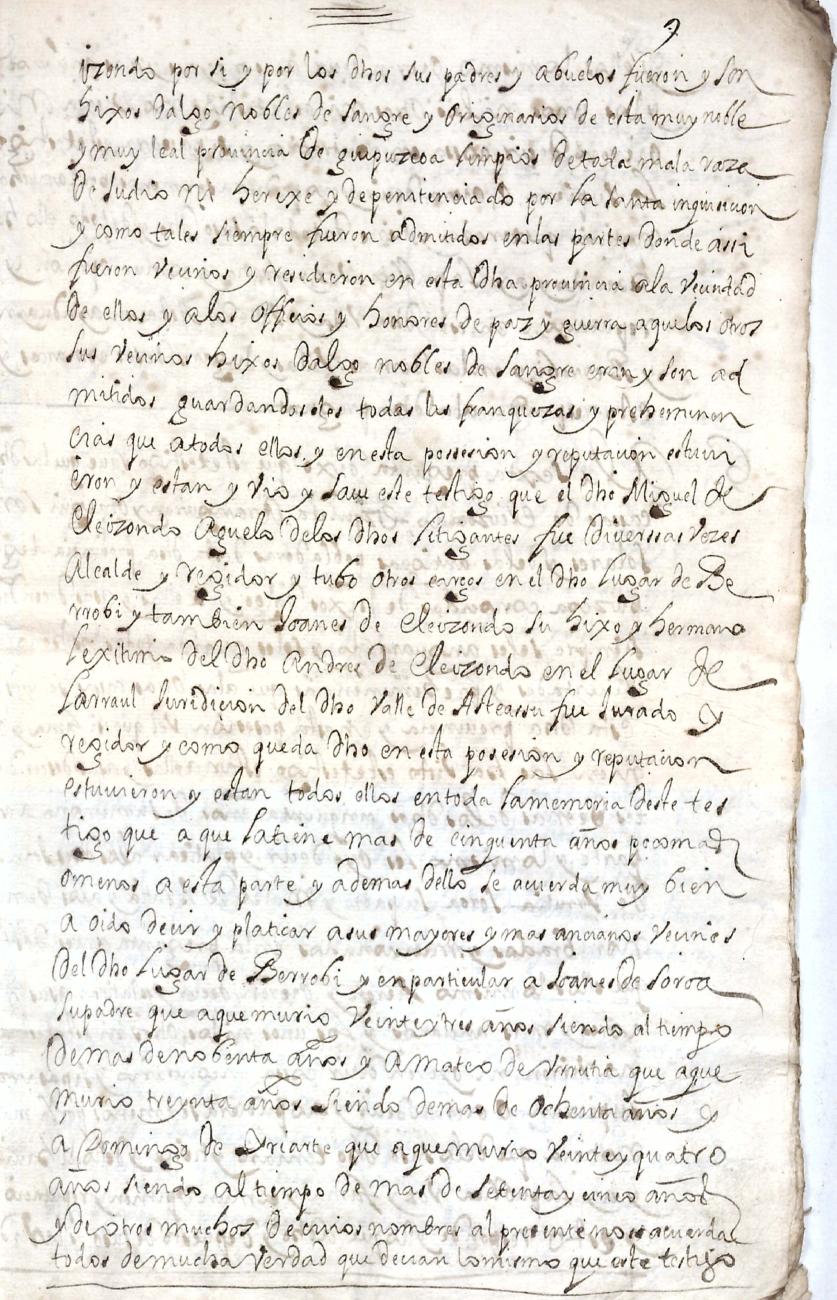 9
izondo por si y por los dhos sus padres y abuelos fueron y son
hixos dalgo nobles de sangre y originarios de esta muy noble
y muy leal provincia de guipuzcoa limpios de toda mala raza
de Judio ni herexe y de penitenciado por la santa inquisicion
y como tales siempre fueron admitidos en las partes donde assi
fueron vecinos y residieron en esta dha provincia a la vecindad
de ellos y a los officios y honores de paz y guerra a que los otros
sus vecinos hixos dalgo nobles de sangre eran y son ad
mitidos guardandoseles todas las franquezas y preheminen
cias que a todos ellos y en esta possesion y reputacion estuvi
eron y estan y vio y save este testigo que el dho Miguel de
Eleizondo aguelo de los dhos litigantes fue diverssas vezes
Alcalde y regidor y tubo otros cargos en el dho lugar de Be
rrobi y tambien Joanes de Eleizondo su hixo y hermano
lexitimo del dho Andres de Eleizondo en el lugar de
Larraul Juridicion del dho valle de Asteassu fue Jurado y
regidor y como queda dho en esta posesion y reputacion
estuvieron y estan todos ellos en toda la memoria deste tes
tigo que a que la tiene mas de cinquenta años poco mas
o menos a esta parte y ademas dello se acuerda muy bien
a oido decir y platicar a sus mayores y mas ancianos vecinos
del dho lugar de Berrobi y en particular a Joanes de Soroa
su padre que a que murio veinte y tres años siendo al tiempo
de mas de nobenta años y a Mateo de Urrutia que a que
murio treynta años siendo de mas de ochenta años y
a Domingo de Yriarte que a que murio veinte y quatro
años siendo al tiempo de mas de setenta y cinco años
y de otros muchos de cuios nombres al presente no se acuerda
todos de mucha verdad que decian lo mismo que este testigo